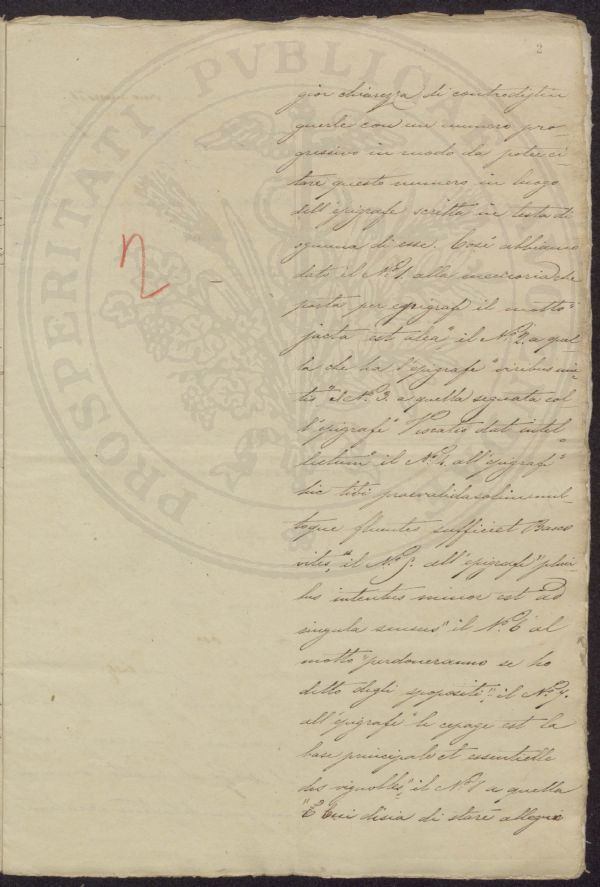 2
gior chiarezza di contradistin
guerle con un numero pro-
gressivo in modo da poter ci-
tare questo numero in luogo
dell'epigrafe scritta in testa di
ognuna di esse. Così abbiamo
dato il N.º 1. alla memoria che
porta per epigrafi il motto "
jacta est alea", il N.º 2. a quel-
la che ha l'epigrafe "viribus uni-
tis" il N.º 3. a quella segnata col-
l'epigrafe "Vexatio dat intel-
lectum" il N.º 4. all'epigrafe "
hic tibi praevalidas olim mul-
toque fluentes sufficiet Baccho
vites," il N.º 5. all'epigrafe "pluri
bus intentus minor est ad
singula sensus" il N.º 6 al
motto "perdoneranno se ho
detto degli spropositi", il N.º 7.
all'epigrafe "le cepage est la
base principale et essentielle
des vignobles", il N.º 8 a quella
"E cui disia di stare allegri
n
PROSPERITATI PVBLICAE